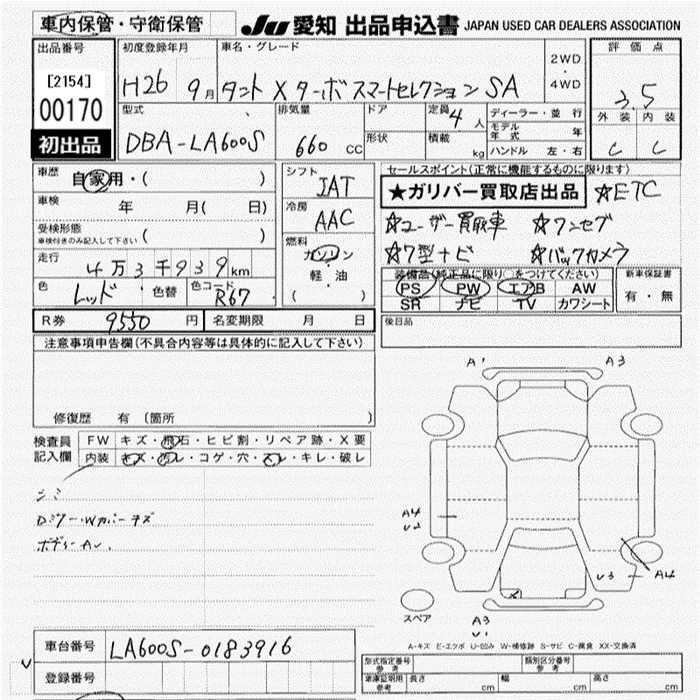 車内保管・守衛保管
JU 愛知 出品申込書 JAPAN USED CAR DEALERS ASSOCIATION
出品番号 初度登録年月 車名・グレード 評価点
[2154] 00170
H26年 9月 タント X ターボ スマートセレクション SA
2WD・4WD
3.5
初出品
型式 排気量 ドア 定員 4人 ディーラー・並行 外装 内装
DBA-LA600S 660 CC 形状 積載 kg モデル年式 年
ハンドル 左・右
C C
車歴 自家用・( )
車検 年 月( 日)
受検形態 ( )
車検付きのみ記入して下さい
走行 4万3千939km
色 レッド 色替 色コード R67
シフト IAT
冷房 AAC
燃料 ガソリン・軽・油 ( )
セールスポイント(正常に機能するものに限ります)
★ガリバー買取店出品 ☆ETC
☆ユーザー買取車 ☆ワンセグ
☆7型ナビ ☆バックカメラ
装備品(純正品に限り○をつけてください) 新車保証書
PS PW エアB AW 有・無
SR ナビ TV カワシート
R券 9550円 名変期限 月 日 後日品
注意事項申告欄(不具合内容等は具体的に記入して下さい)
修復歴 有 (箇所 )
検査員記入欄
FW キズ・飛石・ヒビ割・リペア跡・X要
内装 キズ・汚レ・コゲ・穴・スレ・キレ・破レ
シミ
Dミラー・Wカバーキズ
ボディーAU.
A1 A3
A4
U2
U3 A4
スペア A3
U1
A-キズ E-エクボ U-凹み W-補修跡 S-サビ C-腐食 XX-交換済
車台番号 LA600S-0183916
登録番号
型式指定番号 参考 類別区分番号 参考
車庫証明用 参考 長さ cm 幅 cm 高さ cm